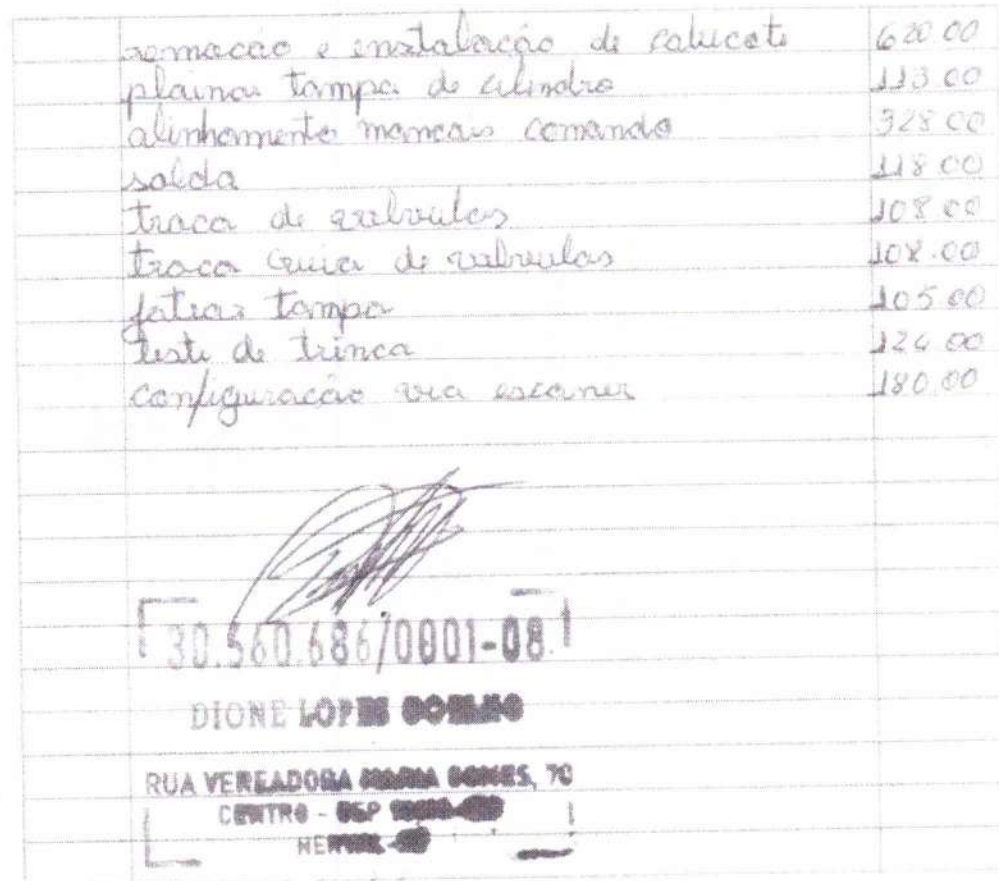 remocão e enstalação de cabecote 620.00
plaina tampa de cilindro 113.00
alinhamento mancais comando 328.00
solda 118.00
traca de valvulas 108.00
troca Guia de valvulas 108.00
fatiar tampa 105.00
teste de trinca 124.00
configuracão via escaner 180.00
30.560.686/0001-08
DIONE LOPES COELHO
RUA VEREADORA MARIA GOMES, 70
CENTRO - CEP